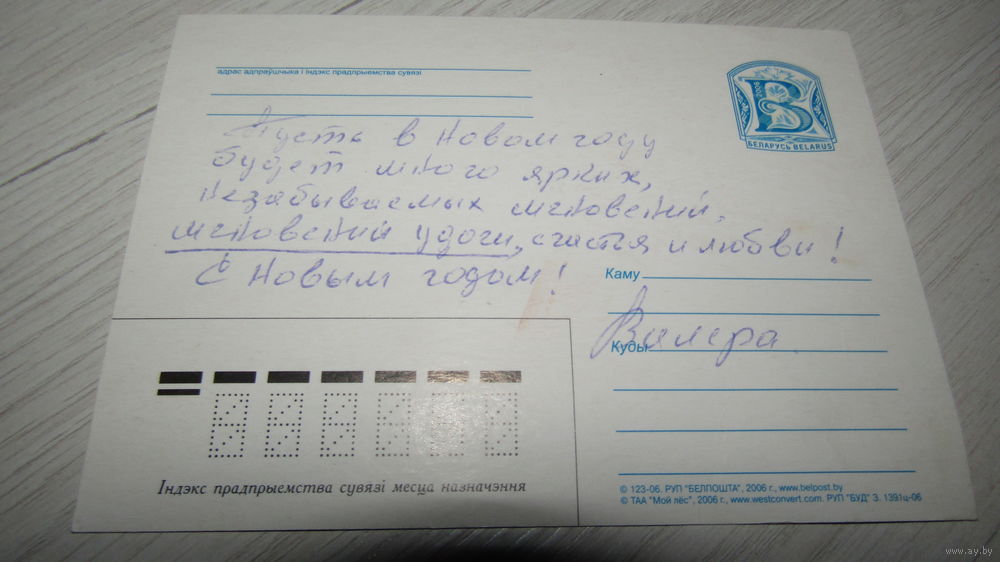 адрас адпраўшчыка і індэкс прадпрыемства сувязі
2006
БЕЛАРУСЬ BELARUS
Пусть в Новом году
будет много ярких,
незабываемых мгновений,
мгновений удачи, счастья и любви!
С Новым годом!
Каму
Куды
Валера
Індэкс прадпрыемства сувязі месца назначэння
© 123-06. РУП "БЕЛПОШТА", 2006 г., www.belpost.by
© ТАА "Мой лёс", 2006 г., www.westconvert.com. РУП "БУД" З. 1391ц-06
www.ay.by